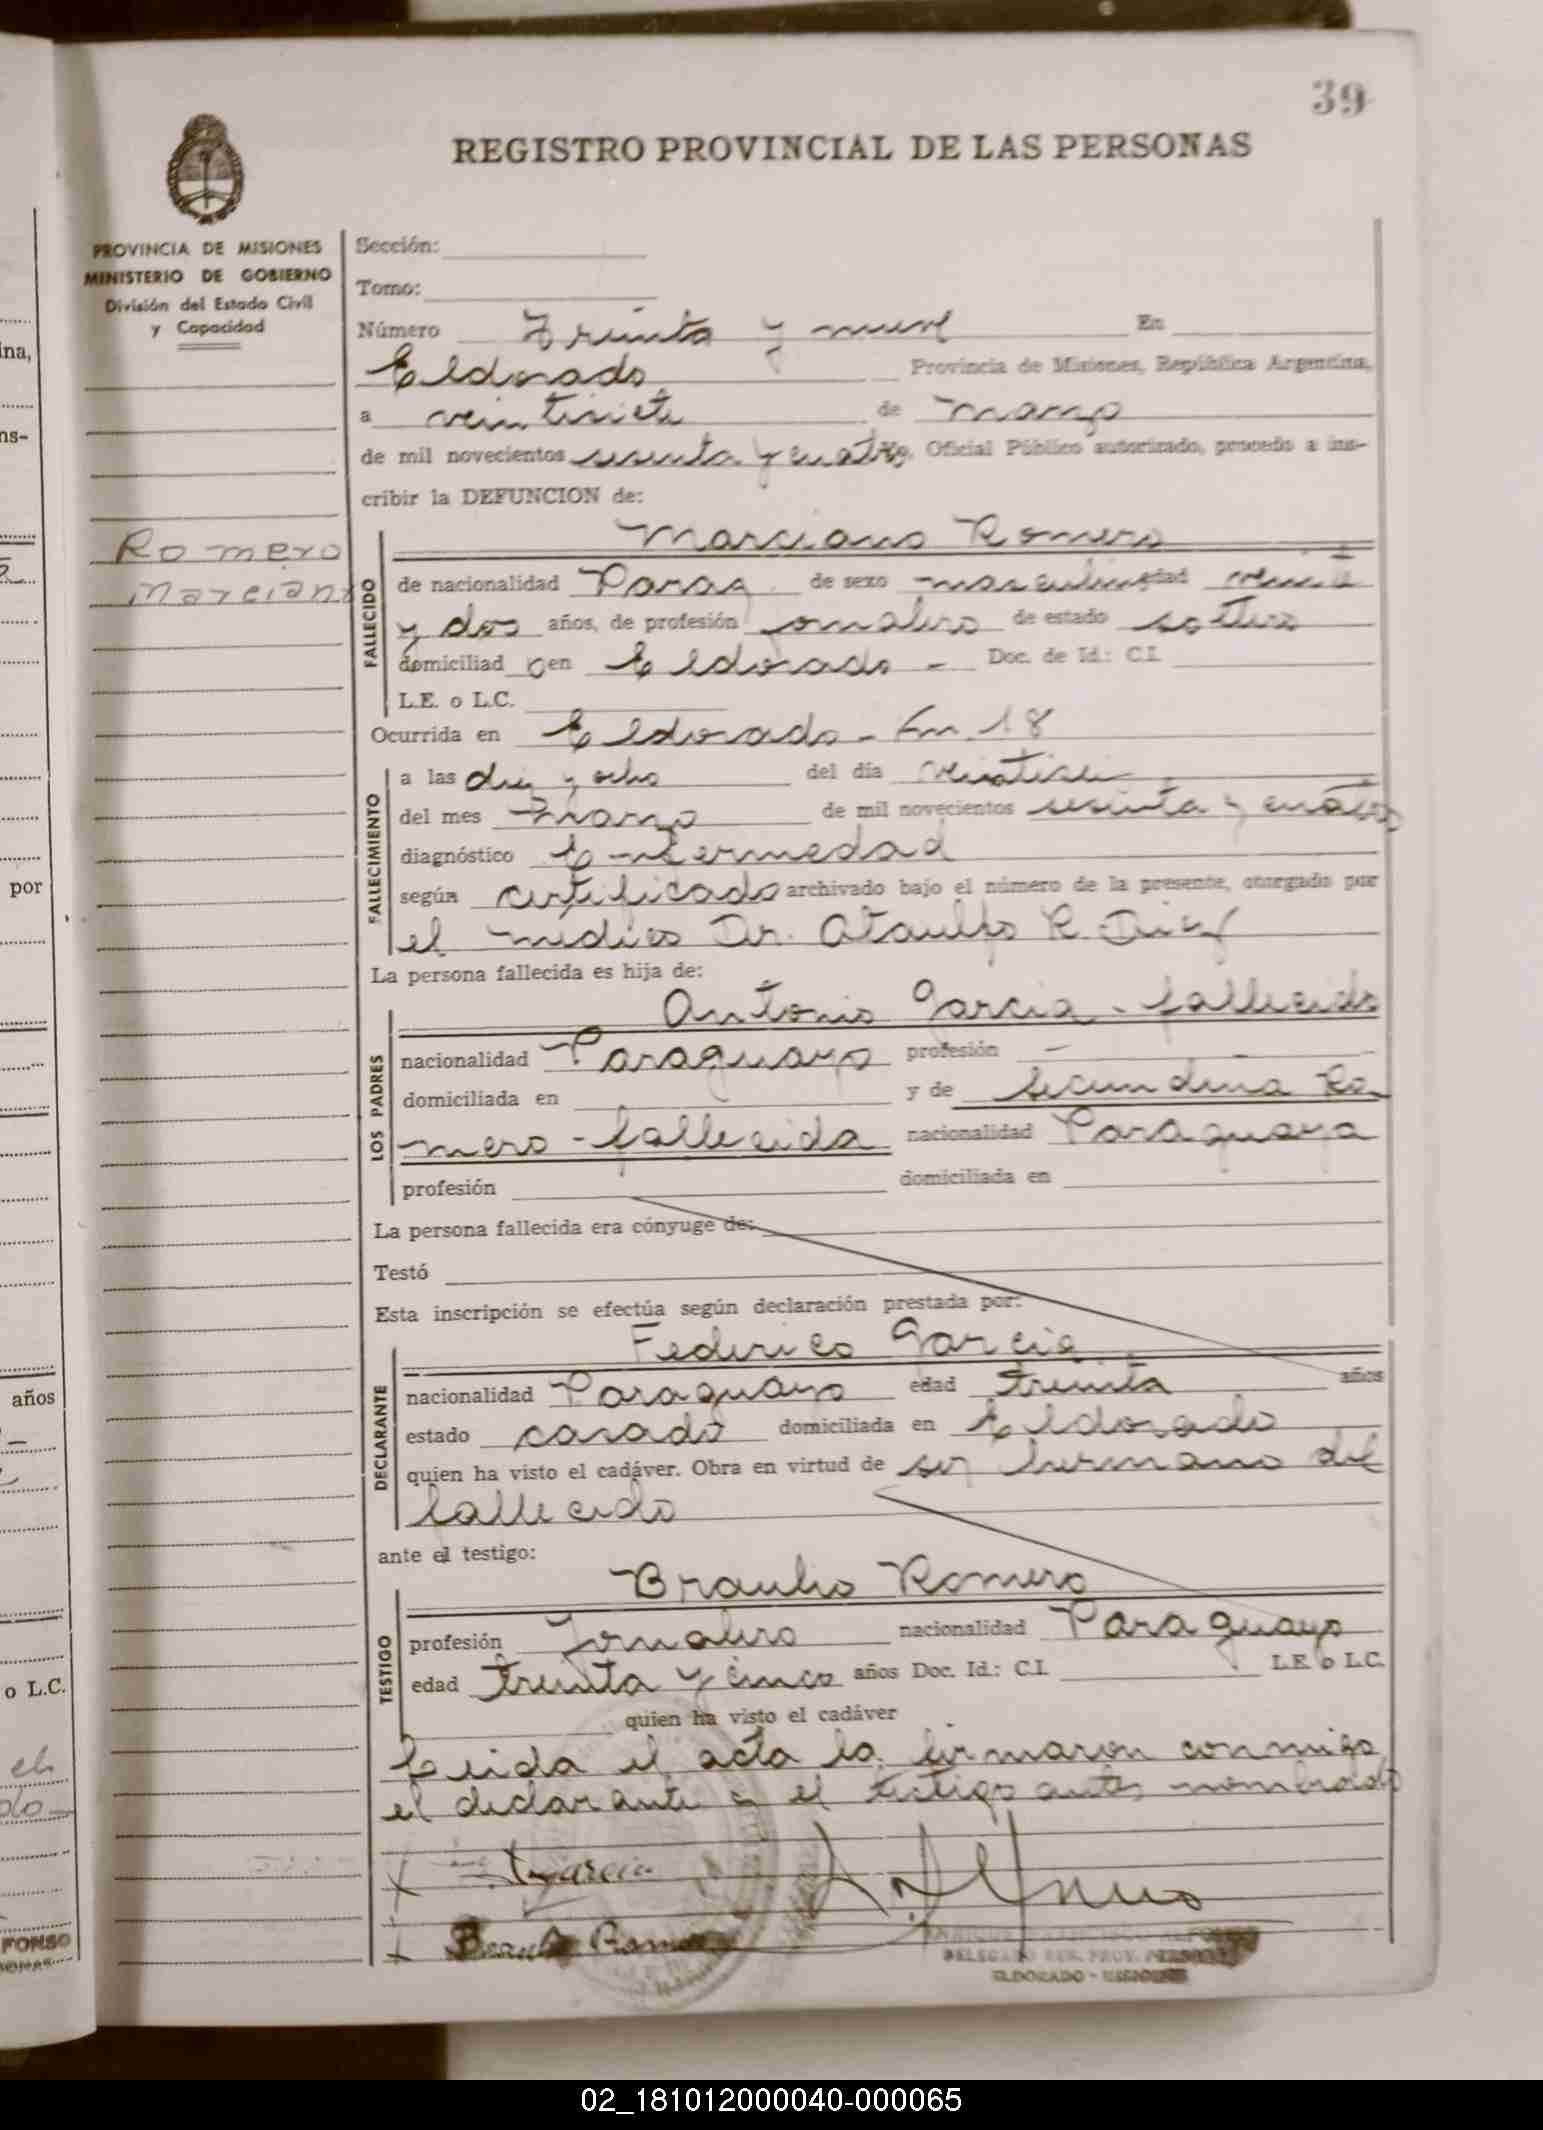 39
REGISTRO PROVINCIAL DE LAS PERSONAS
PROVINCIA DE MISIONES
MINISTERIO DE GOBIERNO
División del Estado Civil
y Capacidad
Romero
Marciano
Sección:
Tomo:
Número Treinta y nueve En
Eldorado Provincia de Misiones, República Argentina,
a veintisiete de marzo
de mil novecientos sesenta y cuatro, Oficial Público autorizado, procedo a ins-
cribir la DEFUNCION de:
Marciano Romero
FALLECIDO
de nacionalidad Parag. de sexo masculino edad
y dos años, de profesión jornalero de estado soltero
domiciliad o en Eldorado - Doc. de Id.: C.I.
L.E. o L.C.
Ocurrida en Eldorado - Km. 18
FALLECIMIENTO
a las diez y ocho del día veintiseis
del mes marzo de mil novecientos sesenta y cuatro
diagnóstico Enfermedad
según certificado archivado bajo el número de la presente, otorgado por
el médico Dr. Ataulfo R. Diez
La persona fallecida es hija de:
Antonio Garcia - fallecido
LOS PADRES
nacionalidad Paraguayo profesión -
domiciliada en y de Secundina Ro-
mero - fallecida nacionalidad Paraguaya
profesión domiciliada en
La persona fallecida era cónyuge de:
Testó
Esta inscripción se efectúa según declaración prestada por:
Federico Garcia
DECLARANTE
nacionalidad Paraguayo edad treinta años
estado casado domiciliada en Eldorado
quien ha visto el cadáver. Obra en virtud de ser hermano del
fallecido
ante el testigo:
Braulio Romero
TESTIGO
profesión Jornalero nacionalidad Paraguayo
edad treinta y cinco años Doc. Id.: C.I. L.E. o L.C.
quien ha visto el cadáver
Leida el acta la firmaron conmigo,
el declarante y el testigo antes nombrado
x Garcia
x Braulio Romero
DELEGADO REG. PROV. PERSONAS
ELDORADO - MISIONES
ina,
ns-
por
años
o L.C.
FONSO
02_181012000040-000065